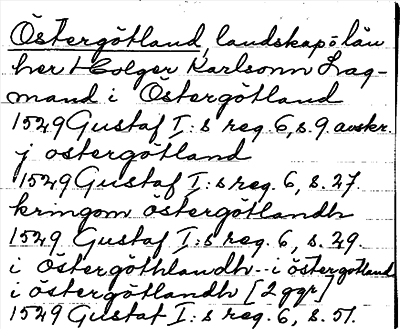 Östergötland, landskap o län
her Holger Karlsonn Lag-
mand i Östergötland
1529 Gustaf I:s reg. 6, s. 9. avskr.
j östergötland
1529 Gustaf I:s reg. 6, s. 27.
kringom östergötlandh
1529 Gustaf I:s reg. 6, s. 29.
i östergöthlandh - i östergötland
i östergötlandh [2 ggr]
1529 Gustaf I:s reg. 6, s. 51.